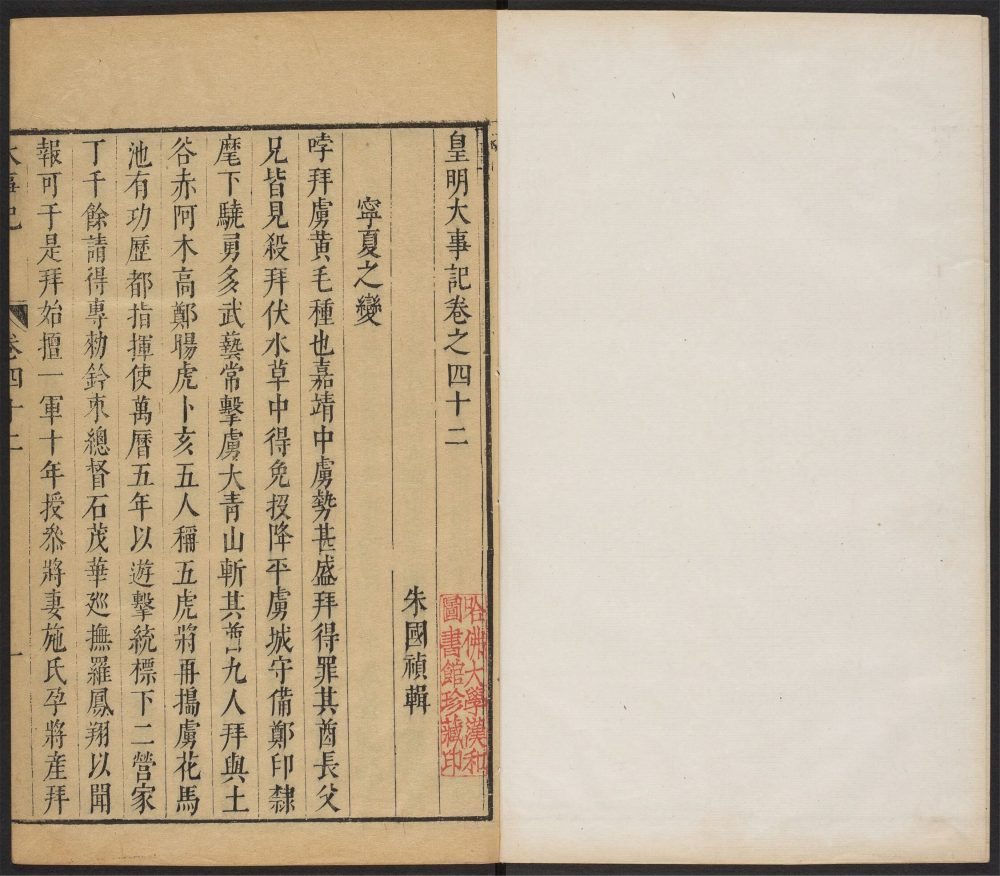 皇明大事記卷之四十二
朱國禎輯
寧夏之變
哱拜虜黄毛種也嘉靖中虜勢甚盛拜得罪其酋長父
兄皆見殺拜伏水草中得免投降平虜城守備鄭印隸
麾下驍勇多武藝常擊虜大青山斬其酋九人拜與土
谷赤阿木高鄭暘虎卜亥五人稱五虎將再搗虜花馬
池有功歷都指揮使萬曆五年以遊擊統標下二營家
丁千餘請得專勑鈐束總督石茂華廵撫羅鳳翔以聞
報可于是拜始擅一軍十年授叅將妻施氏孕將産拜
大事記
卷四十二
一
哈佛大學漢和
圖書館珍藏印